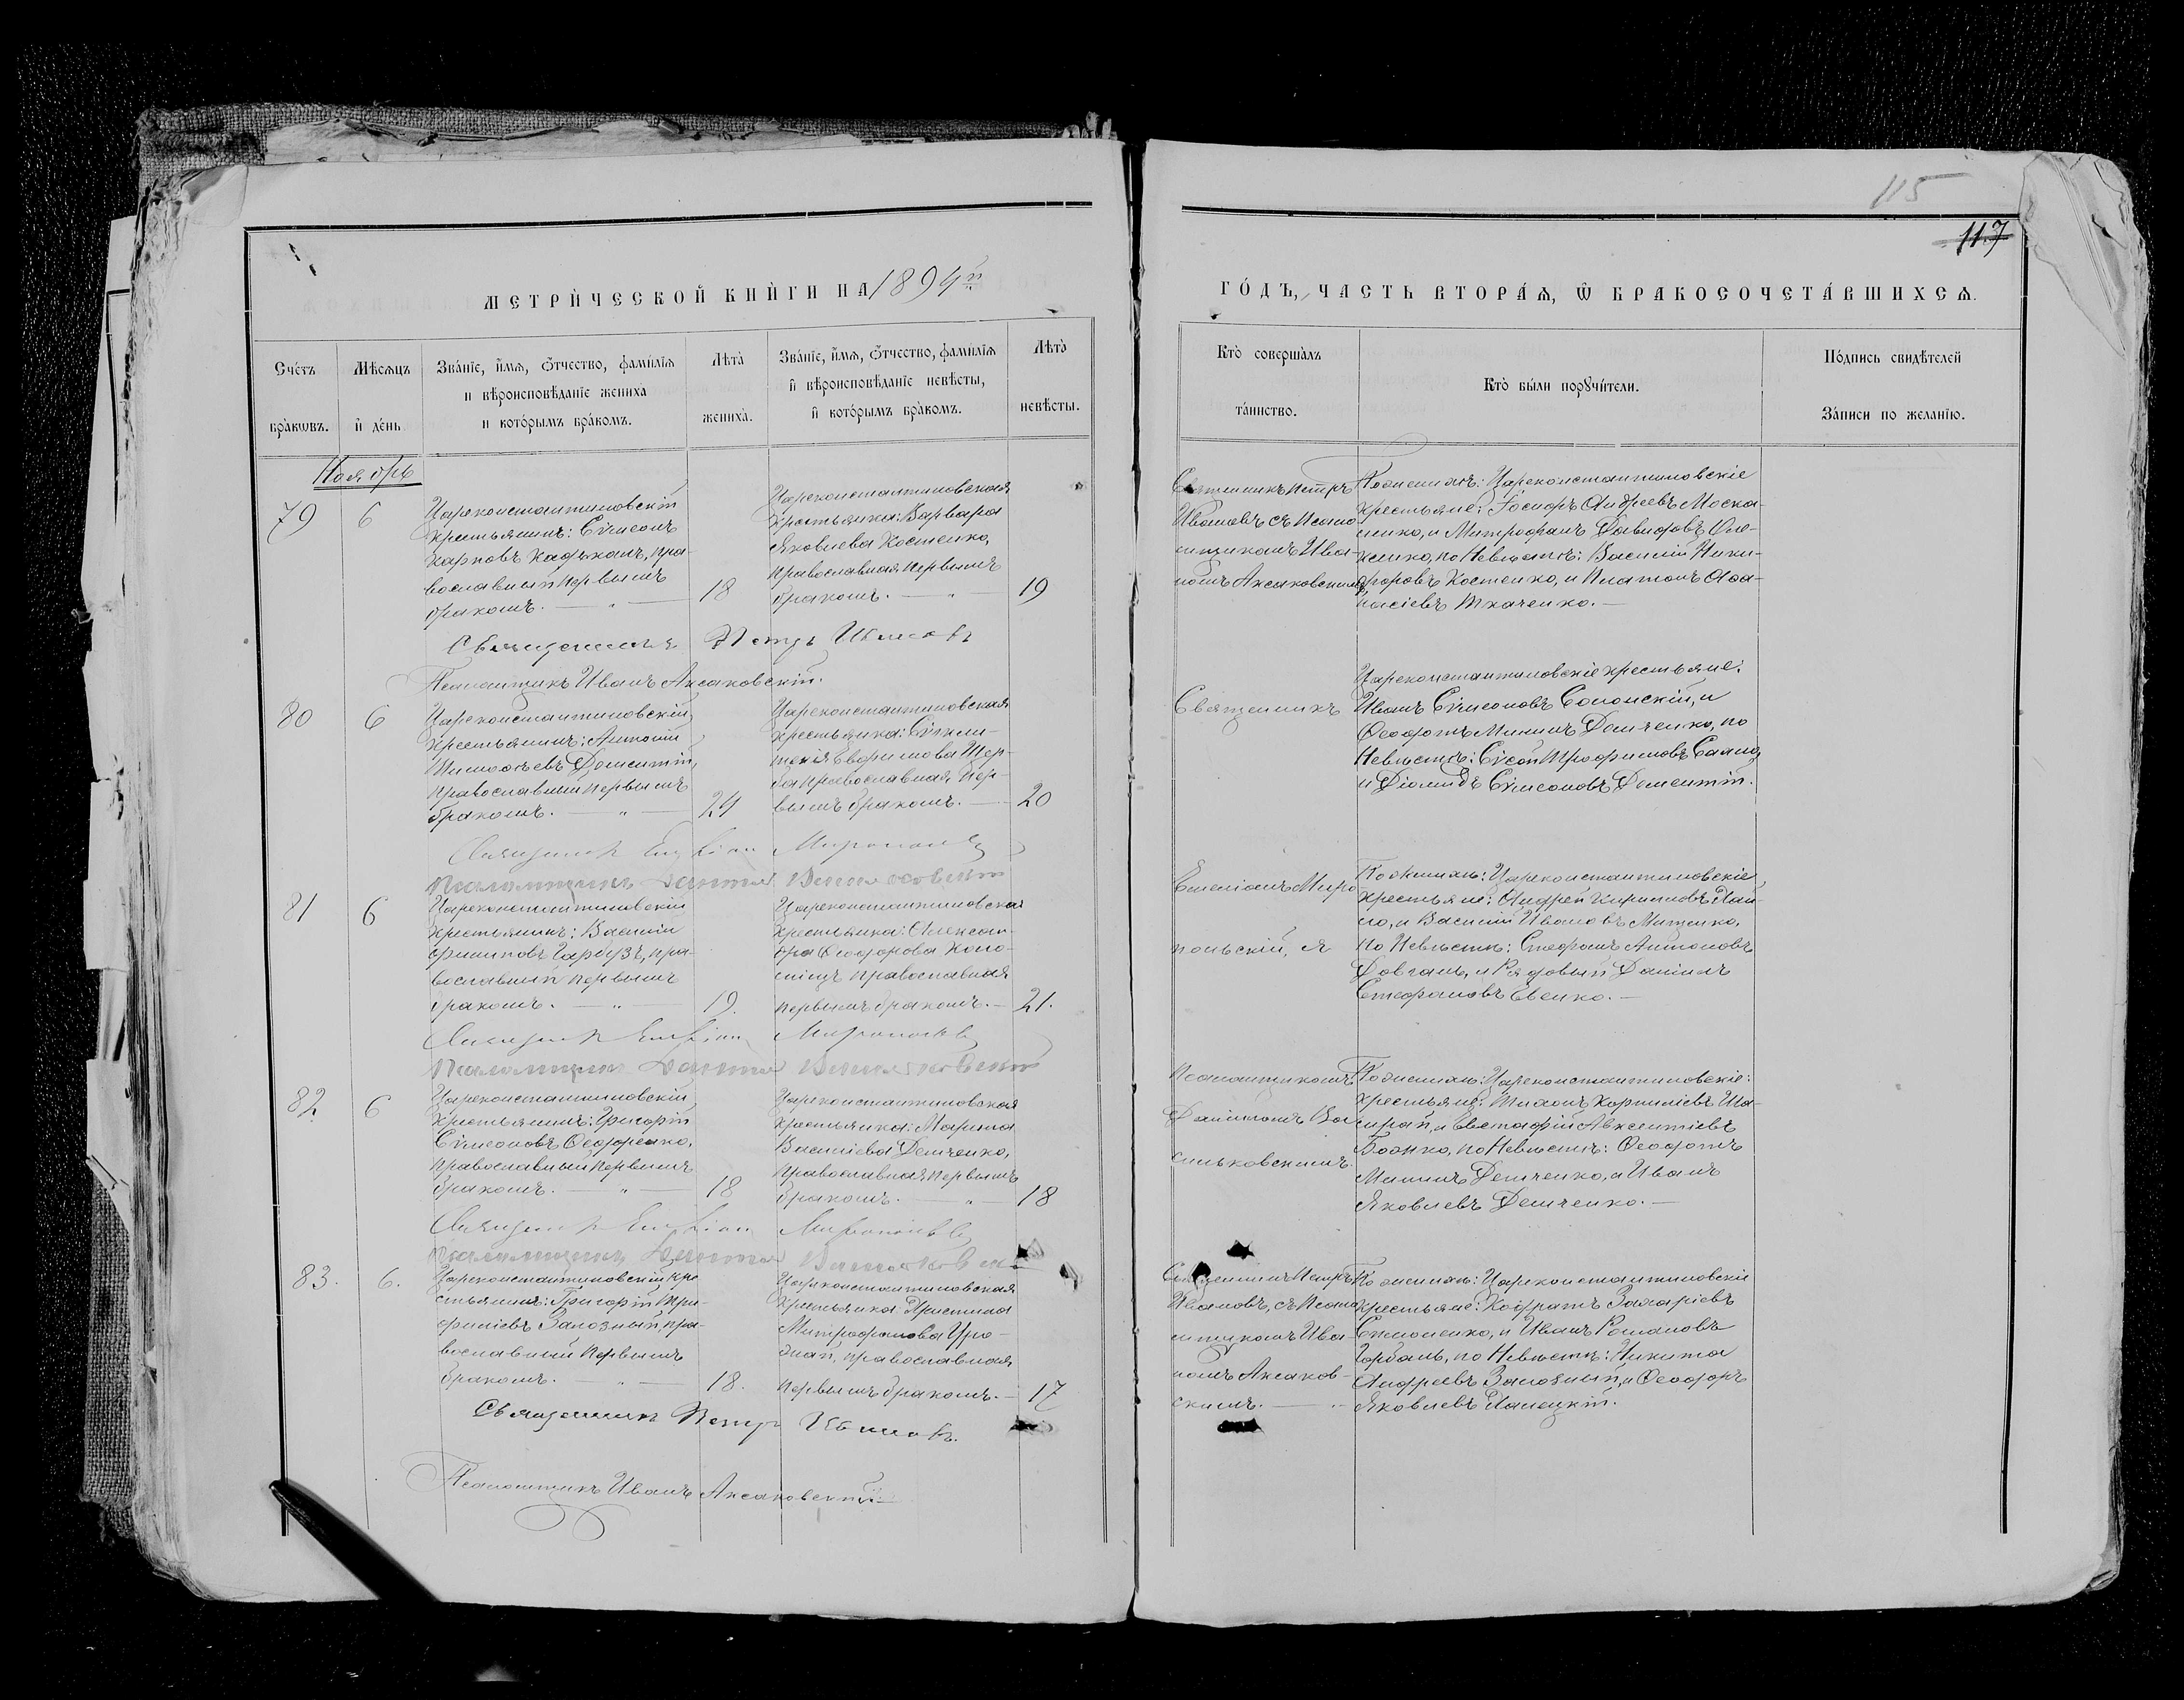 115
117
МЕТРИ́ЧЕСКОЙ КНИ́ГИ НА 1894й
ГО́ДЪ, ЧАСТЬ ВТОРА́Я, Ѡ БРАКОСОЧЕТА́ВШИХСЯ.
Сче́тъ бра́кѡвъ.
Мѣ́сяцъ и҆ де́нь
Зва́нїе, и҆́мя, ѻ҆́тчество, фами́лїя
и вѣроисповѣ́данїе жениха̀
и кото́рымъ бра́комъ.
Лѣта̀ жениха̀.
Зва́нїе, и҆́мя, ѻ҆́тчество, фами́лїя
и҆ вѣроисповѣ́данїе невѣ́сты,
и҆ кото́рымъ бра́комъ.
Лѣта̀ невѣ́сты.
Кто̀ соверша́лъ та́инство.
Кто̀ бы́ли порꙋчи́тели.
По́дпись свидѣ́телей
За́писи по жела́нїю.
Ноябрь
79
6
Цареконстантиновскій
крестьянинъ: Сѵмеонъ
Карповъ, пра-
вославный первымъ
бракомъ. — „ —
18
Цареконстантиновская
крестьянка: Варвара
Яковлева Костенко,
православная, первымъ
бракомъ. — „ —
19
Священникъ Петръ
Ивановъ съ Псало-
мщикомъ Ива-
номъ Аксаковскимъ
По женихѣ: Цареконстантиновскіе
крестьяне: Іосифъ Андреевъ Моска-
ленко, и Митрофанъ Давидовъ
по Невѣстѣ: Василій Ники-
форовъ Костенко, и Платонъ Аѳа-
насіевъ Ткаченко. —
Священникъ Петръ Ивановъ
Псаломщикъ Иванъ Аксаковскій.
80
6
Цареконстантиновскій
крестьянинъ: Антоній
Тимоѳеевъ Дементій,
православный первымъ
бракомъ. — „ —
24
Цареконстантиновская
крестьянка:
Евфимова Щер-
ба православная, пер-
вымъ бракомъ. —
20
Священникъ
Цареконстантиновскіе крестьяне:
Иванъ Сѵмеоновъ Солонскій, и
Ѳеодотъ Мининъ Демченко, по
Невѣстѣ: Трофимовъ
и Діомидъ Сѵмеоновъ Дементій.
Священникъ Емеліанъ
Псаломщикъ Даніилъ Васильковскій
81
6
Цареконстантиновскій
крестьянинъ: Василій
Филиповъ Гарбузъ, пра-
вославный первымъ
бракомъ. — „ —
19.
Цареконстантиновская
крестьянка: Алексан-
дра Ѳеодорова Коло-
міецъ православная
первымъ бракомъ. —
21.
Емеліанъ Миро
польскій, я
По женихѣ: Цареконстантиновскіе
крестьяне: Андрей Кирилловъ Пай-
ло, и Василій Ивановъ Мищенко,
по Невѣстѣ: Стефанъ Антоновъ
Довгаль, и Рядовый Даніилъ
Стефановъ Евенко. —
Священникъ Емеліанъ
Псаломщикъ Даніилъ Васильковскій
82
6
Цареконстантиновскій
крестьянинъ: Григорій
Сѵмеоновъ Ѳеодоренко,
православный первымъ
бракомъ. — „ —
18
Цареконстантиновская
крестьянка: Марина
Василіева Демченко,
православная, первымъ
бракомъ. — „
18
Псаломщикомъ
Даніиломъ Ва
сильковскимъ.
По женихѣ: Цареконстантиновскіе:
крестьяне: Тихонъ Корниліевъ Ша-
и Евстафій Авксентіевъ
Божко, по Невѣстѣ: Ѳеодотъ
Мининъ Демченко, и Иванъ
Яковлевъ Демченко. —
Священникъ Емеліанъ
Псаломщикъ Даніилъ
83.
6.
Цареконстантиновскій кре
стьянинъ: Григорій Три-
филіевъ Залозный, пра-
вославный первымъ
бракомъ. — „ —
18.
Цареконстантиновская
крестьянка: Христина
Митрофанова
православная
первымъ бракомъ. —
17
Священникъ Петръ
Ивановъ, съ Псало
мщикомъ Ива-
номъ Аксаков-
скимъ. —
По женихѣ: Цареконстантиновскіе
крестьяне: Кодратъ Захаріевъ
Симоненко, и Иванъ Романовъ
Горбань, по Невѣстѣ: Никита
Андреевъ Залозный, и Ѳеодоръ
Яковлевъ Палецкій.
Священникъ Петръ Ивановъ.
Псаломщикъ Иванъ Аксаковскій